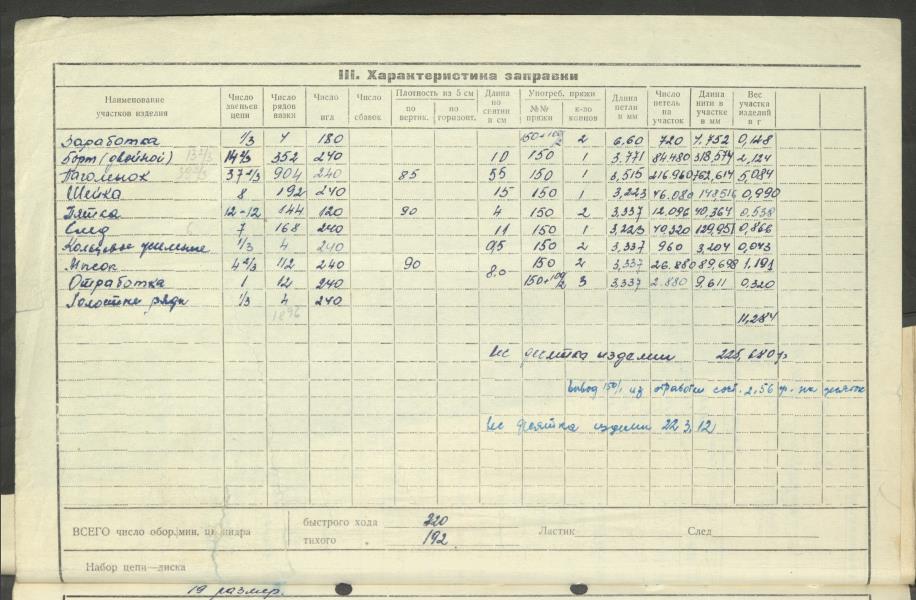 III. Характеристика заправки
Наименование участков изделия | Число звеньев цепи | Число рядов вязки | Число игл | Число сбавок | Плотность из 5 см по вертик. | по горизонт. | Длина по сентии в см | Употреб. пряжи №№ пряжи | к-ло концов | Длина петли в мм | Число петель на участок | Длина нити в участке в мм | Вес участка изделий в г
Заработка 1/3 4 180 150+100/2 2 6,60 720 4,752 0,148
Борт (двойной) 14 2/3 352 240 10 150 1 3,771 84.480 318,574 2,124
Паголенок 37 2/3 904 240 85 55 150 1 3,515 216.960 762,614 5,084
Шейка 8 192 240 15 150 1 3,223 46.080 148,516 0,990
Пятка 12-12 144 120 90 4 150 2 3,337 12.096 40,364 0,538
След 7 168 240 11 150 1 3,223 40,320 129,951 0,866
Кольцевое усиление 1/3 4 240 0,5 150 2 3,337 960 3,204 0,043
Мысок 4 2/3 112 240 90 8,0 150 2 3,337 26.880 89,698 1,191
Отработка 1 12 240 150+100/2 3 3,337 2.880 9,611 0,320
Холостые ряды 1/3 4 240
1896
11,284
Вес десятка изделии 225,680 гр
вывод 150/1 из отработки сост. 2,56 гр. на десяток
Вес десятка изделии 223,12
ВСЕГО число обор./мин. цилиндра быстрого хода 220 Ластик След
тихого „ 192
Набор цепи—диска
19 размер.